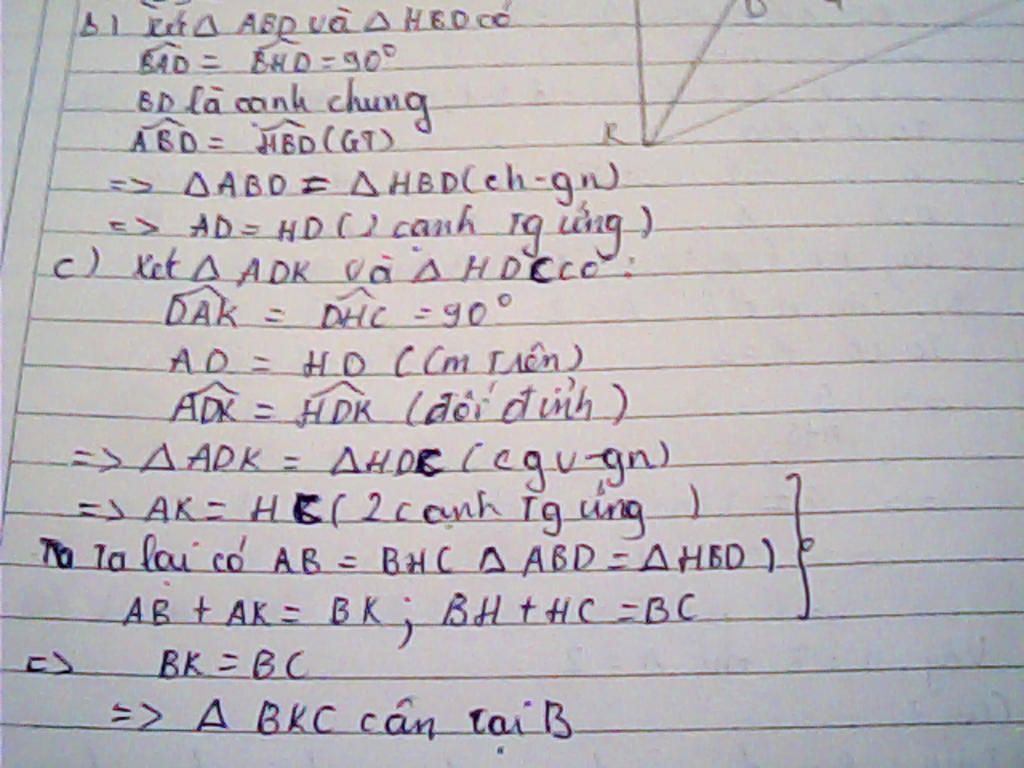 b) Xét Δ ABD và Δ HBD có
BAD = BHD = 90°
BD là cạnh chung
ABD = HBD (GT)
=> Δ ABD = Δ HBD (ch-gn)
=> AD = HD (2 cạnh Tg ứng)
c) Xét Δ ADK và Δ HDC có :
DAK = DHC = 90°
AD = HD (Cm Trên)
ADK = HDK (đối đỉnh)
=> Δ ADK = Δ HDC (cgv-gn)
=> AK = HC (2 cạnh Tg ứng )
Ta lại có AB = BH ( Δ ABD = Δ HBD )
AB + AK = BK ; BH + HC = BC
=> BK = BC
=> Δ BKC cân tại B
K